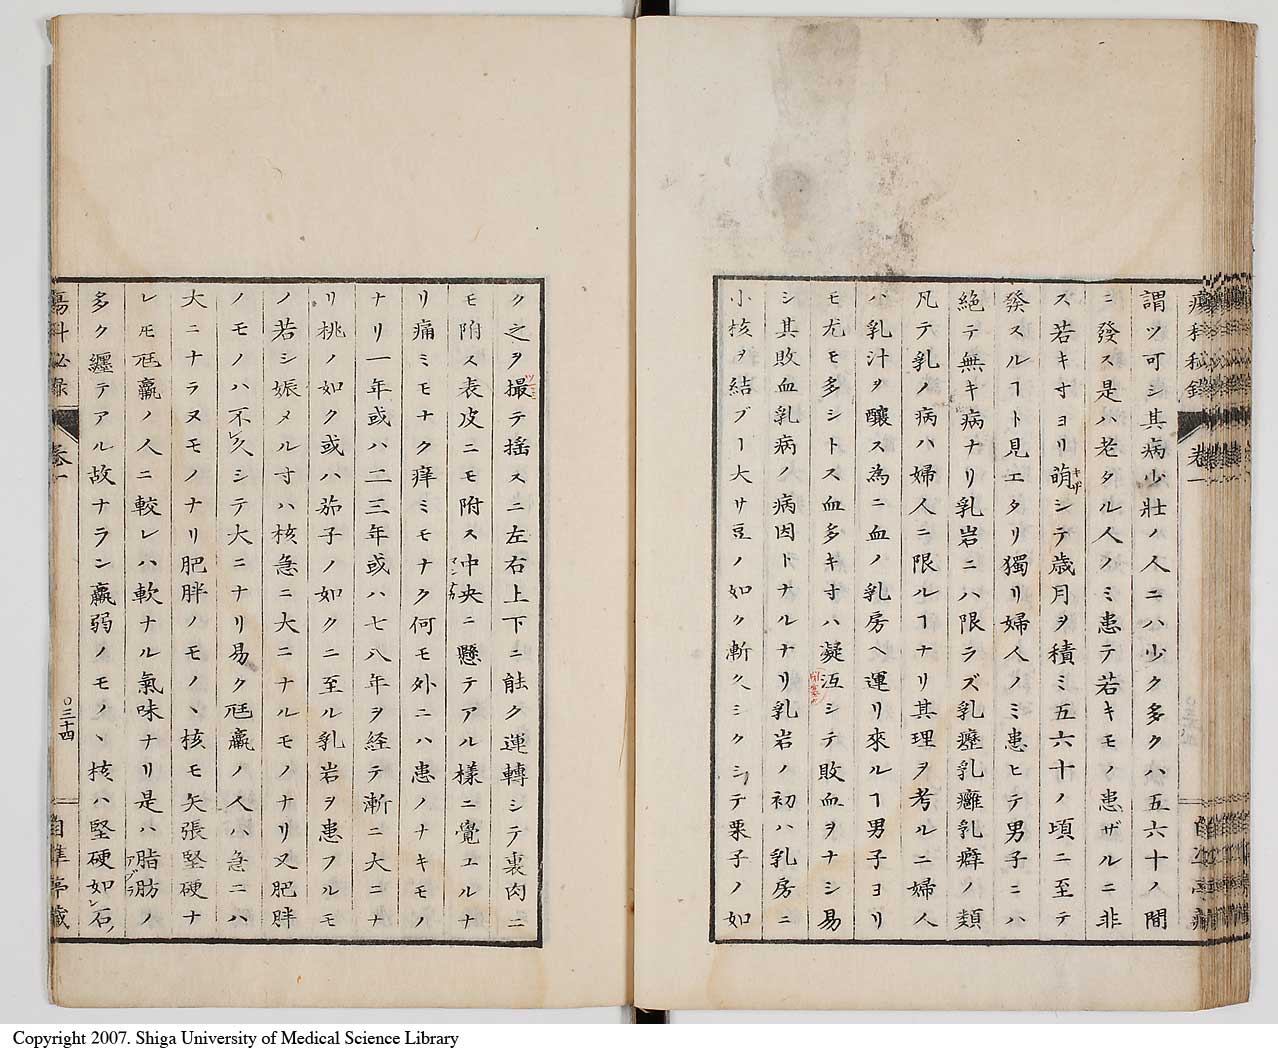 瘍科秘録 卷一
謂ツ可シ其病少壮ノ人ニハ少ク多クハ五六十ノ間
ニ發ス是ハ老タル人ノミ患テ若キモノ患ザルニ非
ス若キ寸ヨリ萌シテ歳月ヲ積ミ五六十ノ頃ニ至テ
キザ
發スルヿト見エタリ獨リ婦人ノミ患ヒテ男子ニハ
絶テ無キ病ナリ乳岩ニハ限ラズ乳癧乳癰乳癖ノ類
凡テ乳ノ病ハ婦人ニ限ルヿナリ其理ヲ考ルニ婦人
ハ乳汁ヲ釀ス為ニ血ノ乳房ヘ運リ來ルヿ男子ヨリ
モ尤モ多シトス血多キ寸ハ凝沍シテ敗血ヲナシ易
シ其敗血乳病ノ病因トナルナリ乳岩ノ初ハ乳房ニ
小核ヲ結ブー大サ豆ノ如ク漸々ミクシテ栗子ノ如
ク之ヲ撮テ揺スニ左右上下ニ能ク運轉シテ裏肉ニ
ツミ
モ附ス表皮ニモ附ス中央ニ懸テアル様ニ覺ユルナ
リ痛ミモナク痒ミモナク何モ外ニハ患ノナキモノ
ナリ一年或ハ二三年或ハ七八年ヲ経テ漸ニ大ニナ
リ桃ノ如ク或ハ茄子ノ如クニ至ル乳岩ヲ患フルモ
ノ若シ娠メル寸ハ核急ニ大ニナルモノナリ又肥胖
ノモノハ不久シテ大ニナリ易ク尫羸ノ人ハ急ニハ
大ニナラヌモノナリ肥胖ノモノヽ核モ矢張堅硬ナ
レ𪜈尫羸ノ人ニ較レハ軟ナル氣味ナリ是ハ脂肪ノ
アブラ
多ク纏テアル故ナラン羸弱ノモノヽ核ハ堅硬如石
瘍科秘録 卷一 ○三十四 自準亭藏
Copyright 2007. Shiga University of Medical Science Library